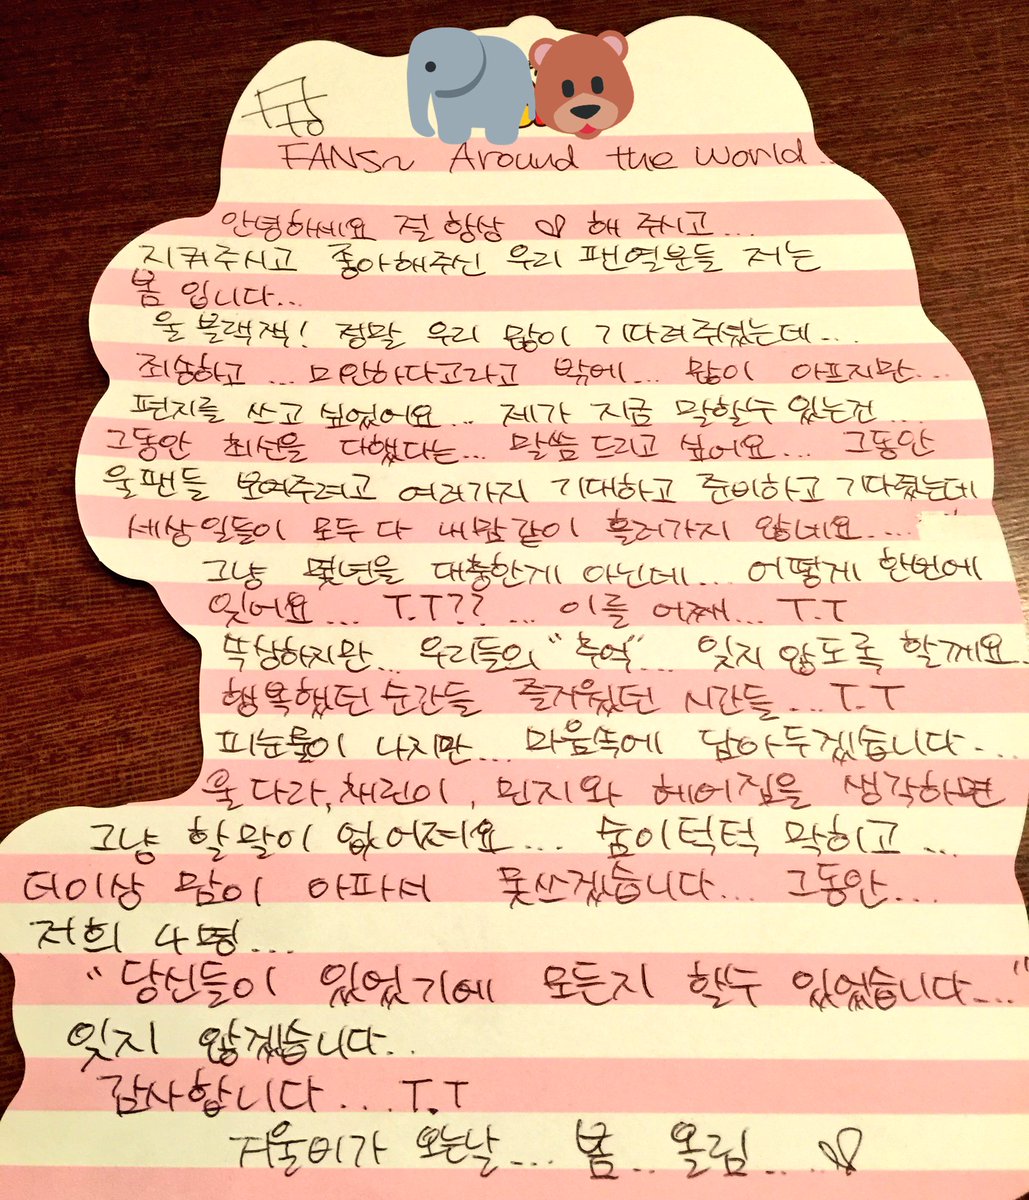 FANS~ Around the World...
안녕하세요 절 항상 ♡ 해 주시고...
지켜주시고 좋아해주신 우리 팬 열분들 저는
봄 입니다...
울 블랙잭! 정말 우리 많이 기다려주셨는데...
죄송하고... 미안하다고라고 밖에... 맘이 아프지만...
편지를 쓰고 싶었어요... 제가 지금 말할수 있는건...
그동안 최선을 다했다는... 말씀 드리고 싶어요... 그동안
울팬들 보여주려고 여러가지 기대하고 준비하고 기다렸는데
세상일들이 모두 다 내맘같이 흘러가지 않네요....
그냥 몇년을 대충한게 아닌데... 어떻게 한번에
잊어요... T.T?? ... 이를 어째... T.T
뚝상하지만... 우리들의 "추억"... 잊지 않도록 할께요..
행복했던 순간들 즐거웠던 시간들... T.T
피눈물이 나지만... 마음속에 담아두겠습니다...
울 다라, 채린이, 민지와 헤어짐을 생각하면
그냥 할말이 없어져요... 숨이턱턱 막히고...
더이상 맘이 아파서 못쓰겠습니다... 그동안....
저희 4명...
"당신들이 있었기에 모든지 할수 있었습니다..."
잊지 않겠습니다..
감사합니다... T.T
겨울비가 오는날... 봄.. 올림... ♡